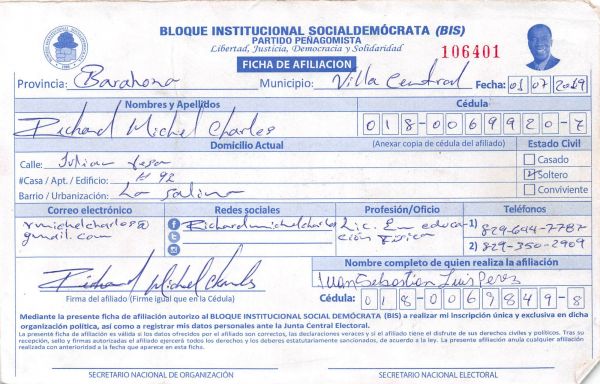 BLOQUE INSTITUCIONAL SOCIALDEMÓCRATA (BIS)
PARTIDO PEÑAGOMISTA
Libertad, Justicia, Democracia y Solidaridad
106401
FICHA DE AFILIACION
Provincia: Barahona Municipio: Villa Central Fecha: 01 07 2019
Nombres y Apellidos Cédula
Richard Michel Charles 018-0069920-7
Domicilio Actual (Anexar copia de cédula del afiliado) Estado Civil
Calle: Casado
#Casa / Apt. / Edificio: # 92 Soltero
Barrio / Urbanización: La Salina Conviviente
Correo electrónico Redes sociales Profesión/Oficio Teléfonos
rmichelcharlos@ Richardmichelcharlos Lic. En educa- 1) 829-644-7787
gmail.com ción Física 2) 829-350-2909
Richard Michel Charles
Nombre completo de quien realiza la afiliación
Juan Sebastian Luis Perez
Firma del afiliado (Firme igual que en la Cédula) Cédula: 018-0069849-8
Mediante la presente ficha de afiliación autorizo al BLOQUE INSTITUCIONAL SOCIAL DEMÓCRATA (BIS) a realizar mi inscripción única y exclusiva en dicha
organización política, así como a registrar mis datos personales ante la Junta Central Electoral.
La presente ficha de afiliación es válida si los datos ofrecidos por el afiliado son correctos, las declaraciones veraces y si el afiliado tiene el disfrute de sus derechos civiles y políticos. Tras su
recepción, sello y firmas autorizadas el afiliado ejercerá todos los derechos y los deberes estatutariamente sancionados, de acuerdo a la ley. La presente afiliación anula cualquier afiliación
realizada con anterioridad a la fecha que aparece en esta ficha.
SECRETARIO NACIONAL DE ORGANIZACIÓN SECRETARIO NACIONAL ELECTORAL